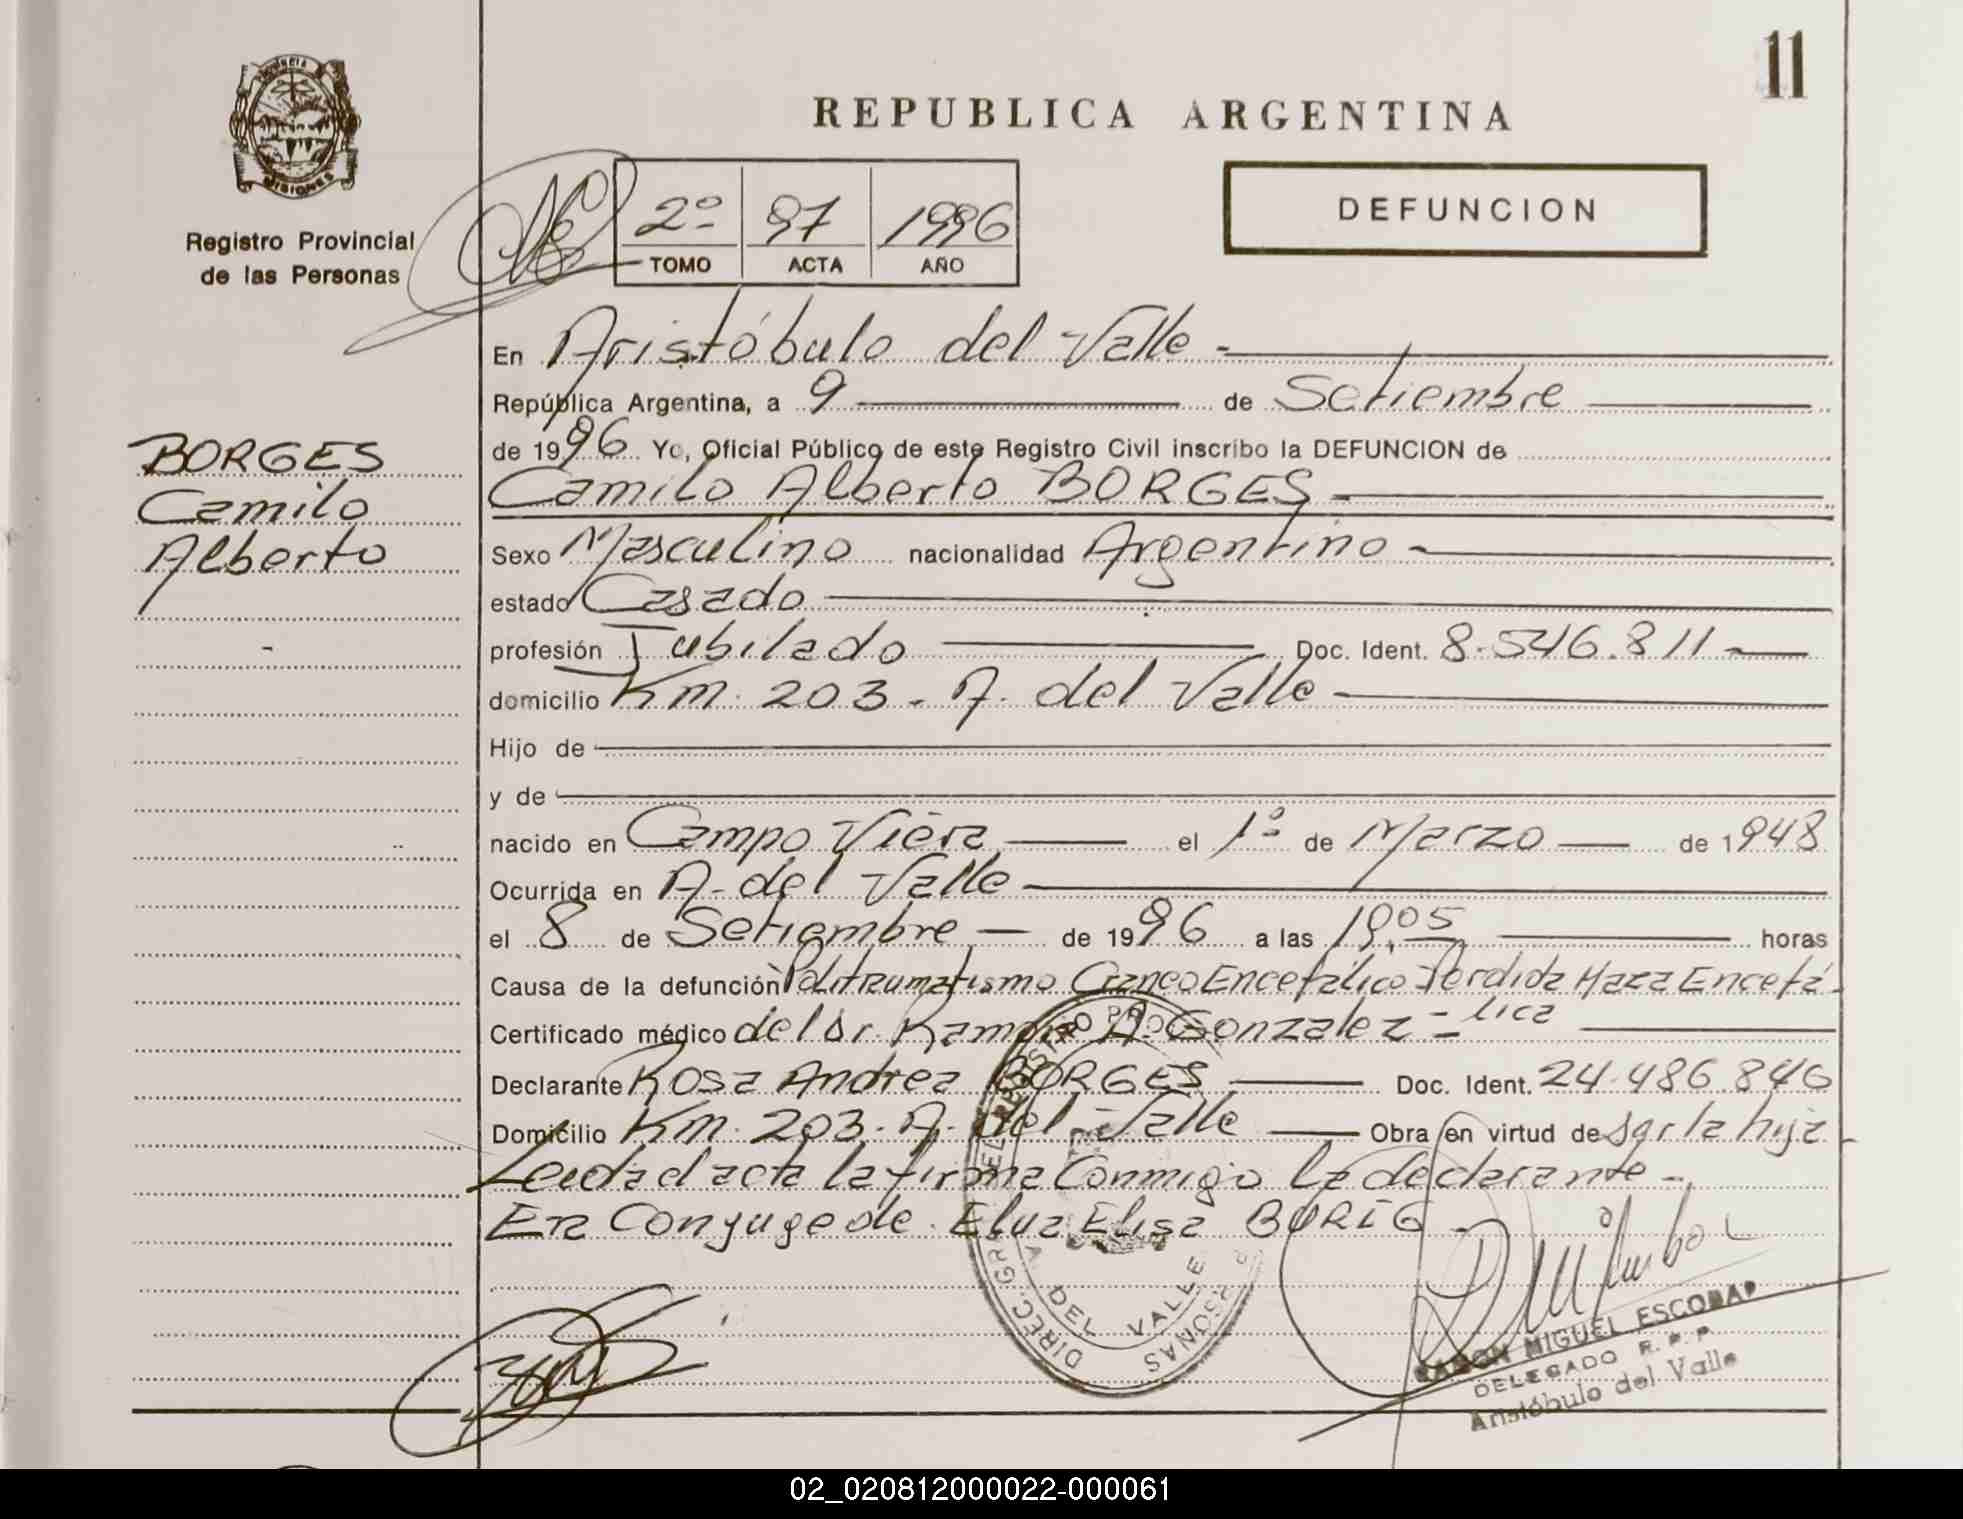 11
REPUBLICA ARGENTINA
PROVINCIA
MISIONES
Registro Provincial
de las Personas
2º 97 1996
TOMO ACTA AÑO
DEFUNCION
BORGES
Camilo
Alberto
En Aristóbulo del Valle -
República Argentina, a 9 de Setiembre
de 1996 Yo, Oficial Público de este Registro Civil inscribo la DEFUNCION de
Camilo Alberto BORGES -
Sexo Masculino nacionalidad Argentino -
estado Casado
profesión Jubilado Doc. Ident. 8.546.811 -
domicilio Km. 203 - A. del Valle -
Hijo de
y de
nacido en Campo Viera el 1º de Marzo de 1948
Ocurrida en A. del Valle
el 8 de Setiembre de 1996 a las 19,05 horas
Causa de la defunción Politraumatismo Craneo Encefálico Perdida Maza Encefá-
lica
Certificado médico del Dr. Ramón A. Gonzalez -
Declarante Rosa Andrea BORGES Doc. Ident. 24.486.846
Domicilio Km. 203 - A. del Valle Obra en virtud de ser la hija -
Leida el acta la firma Conmigo la declarante -
Era Conyuge de Elva Elisa BURIG -
DIREC. GRAL. DEL REGISTRO PROV. PERSONAS
A. DEL VALLE
RAMON MIGUEL ESCOBAR
DELEGADO R. P. P.
Aristóbulo del Valle
02_020812000022-000061